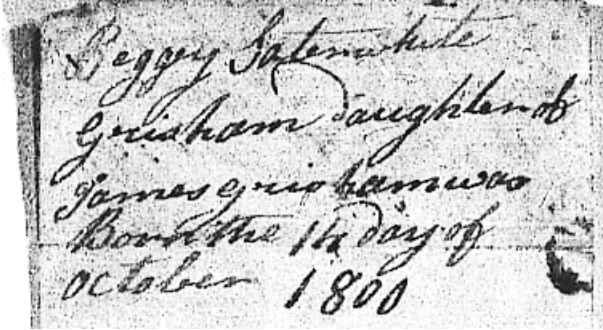 Peggey Satterwhite
Grisham daughter of
James Grisham was
Born the day of
october 1800